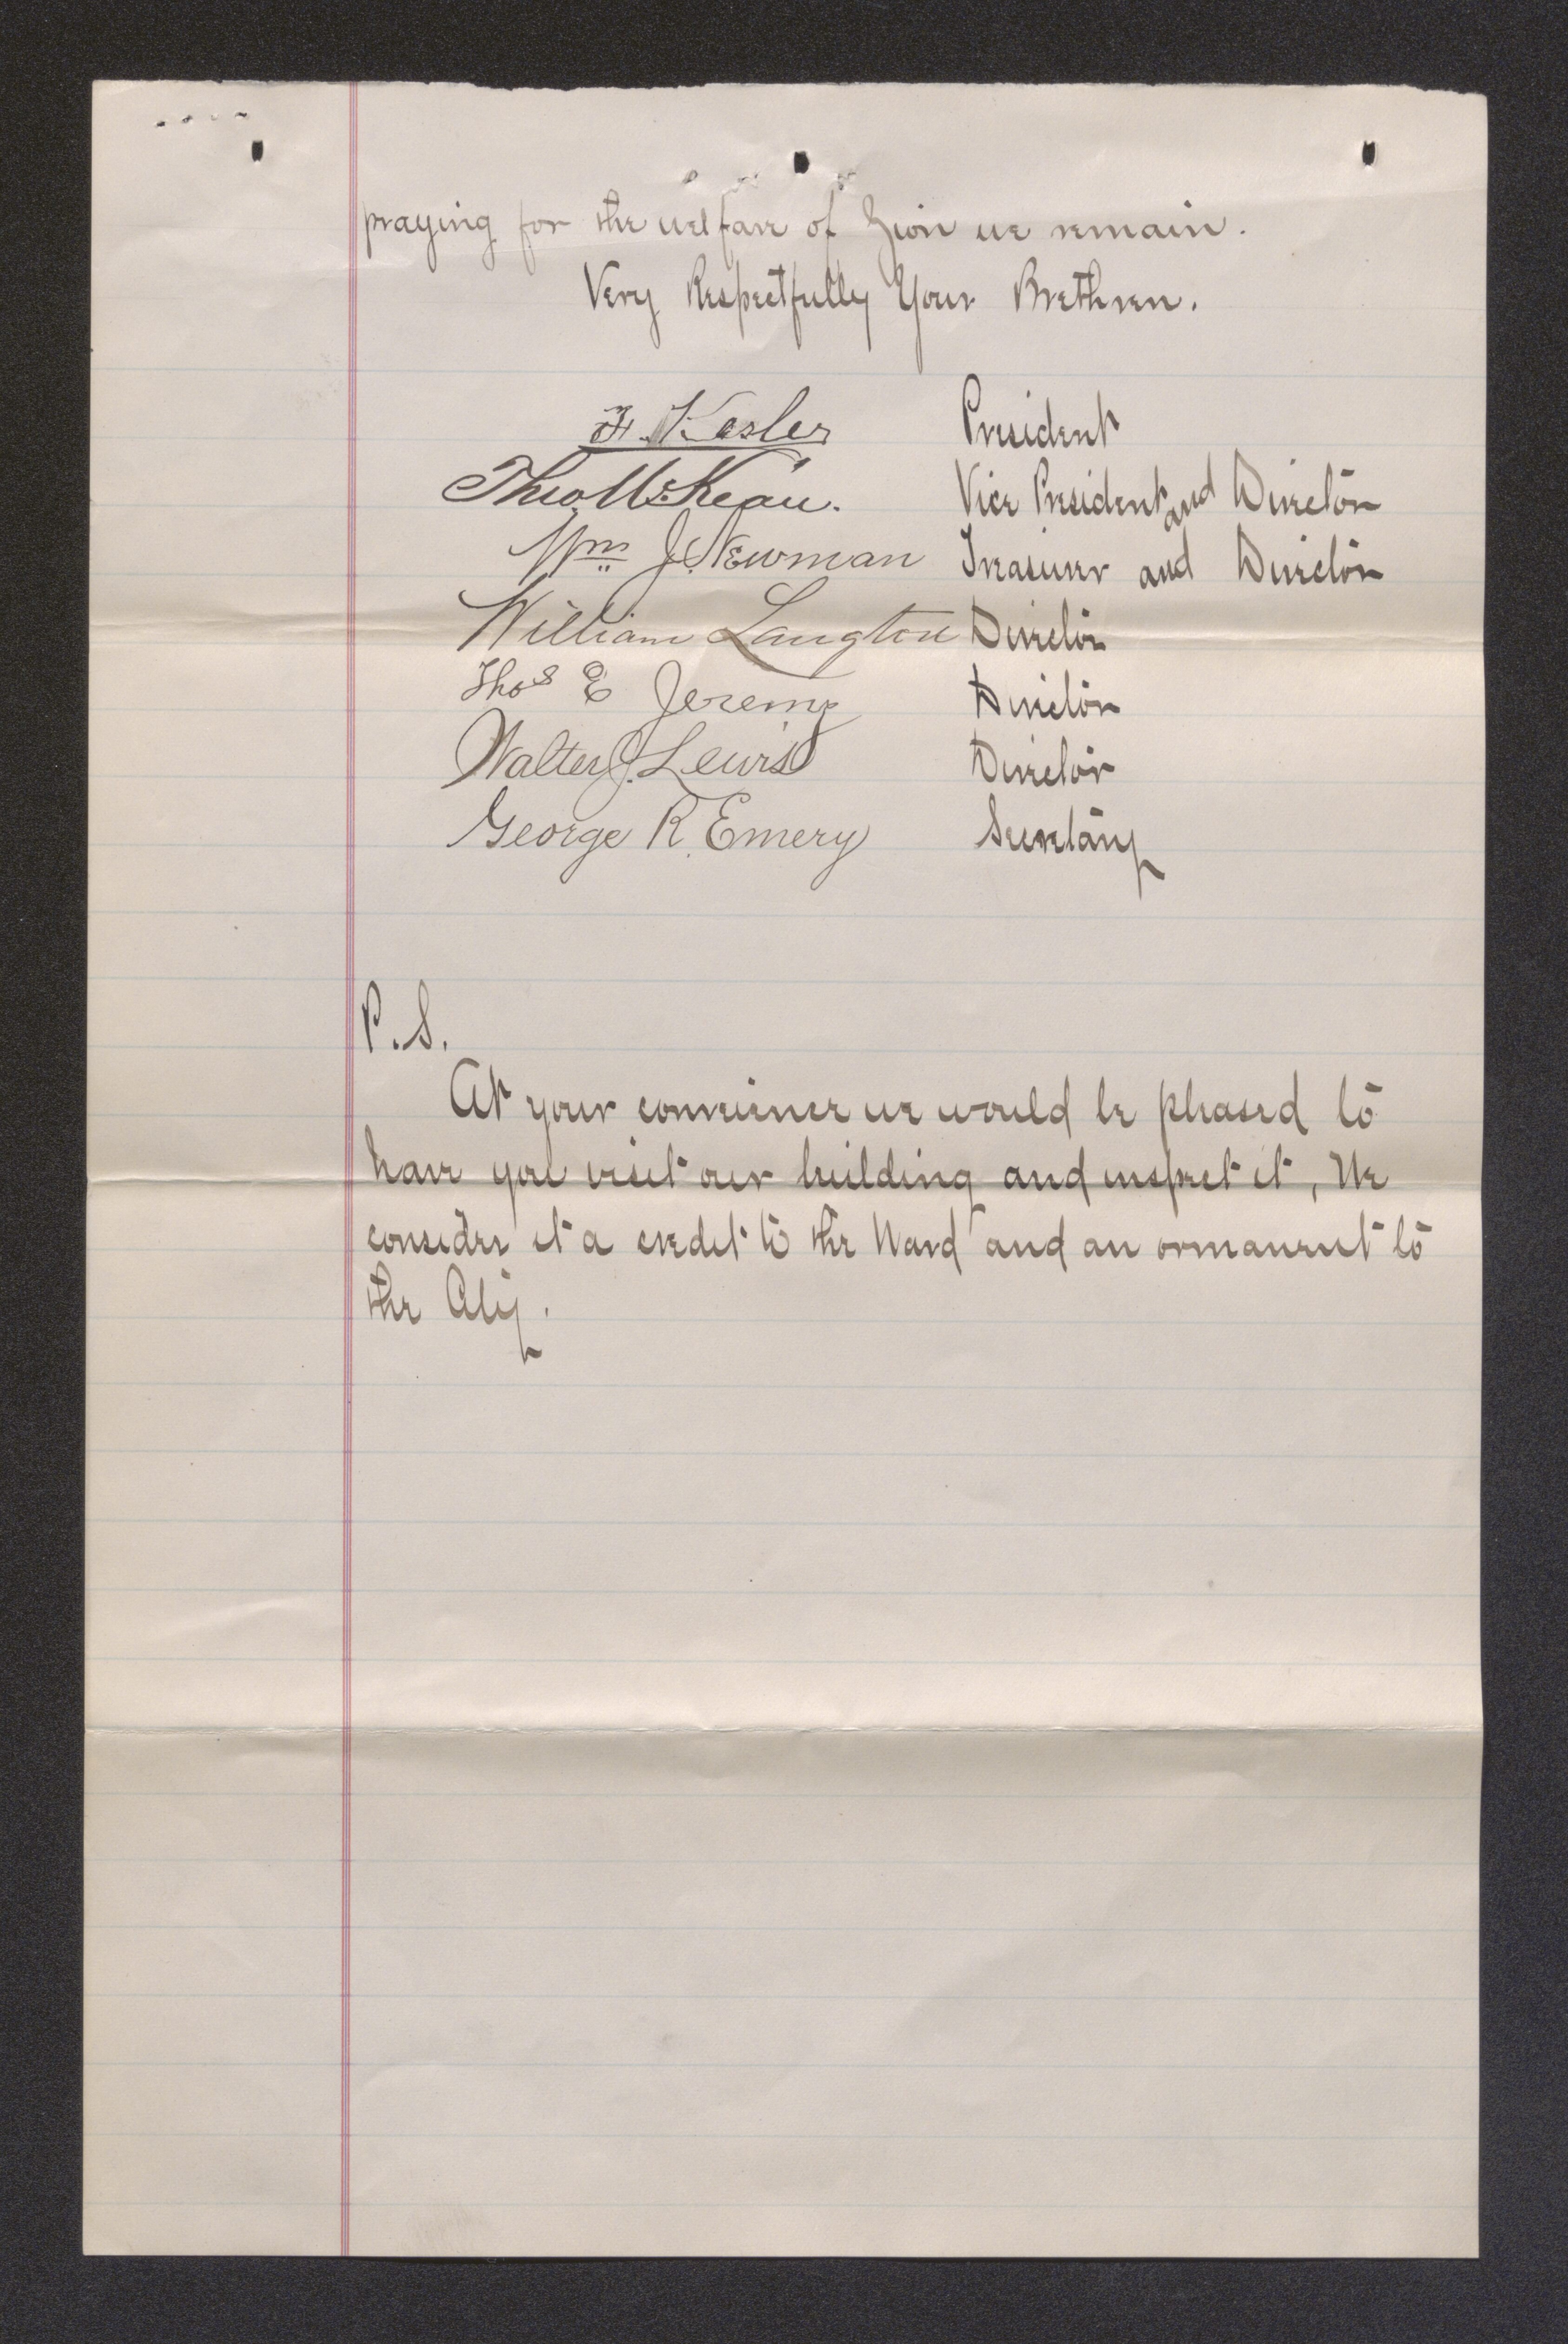 praying for the welfare of Zion we remain.
Very Respectfully Your Brethren.
F. Kesler President
Theo. McKean. Vice President and Director
Wm J. Newman Treasurer and Director
William Langton Director
Thos E Jeremy Director
Walter J. Lewis Director
George R. Emery Secretary
P.S.
At your convenience we would be pleased to
have you visit our building and inspect it, We
consider it a credit to the Ward and an ornament to
the City.